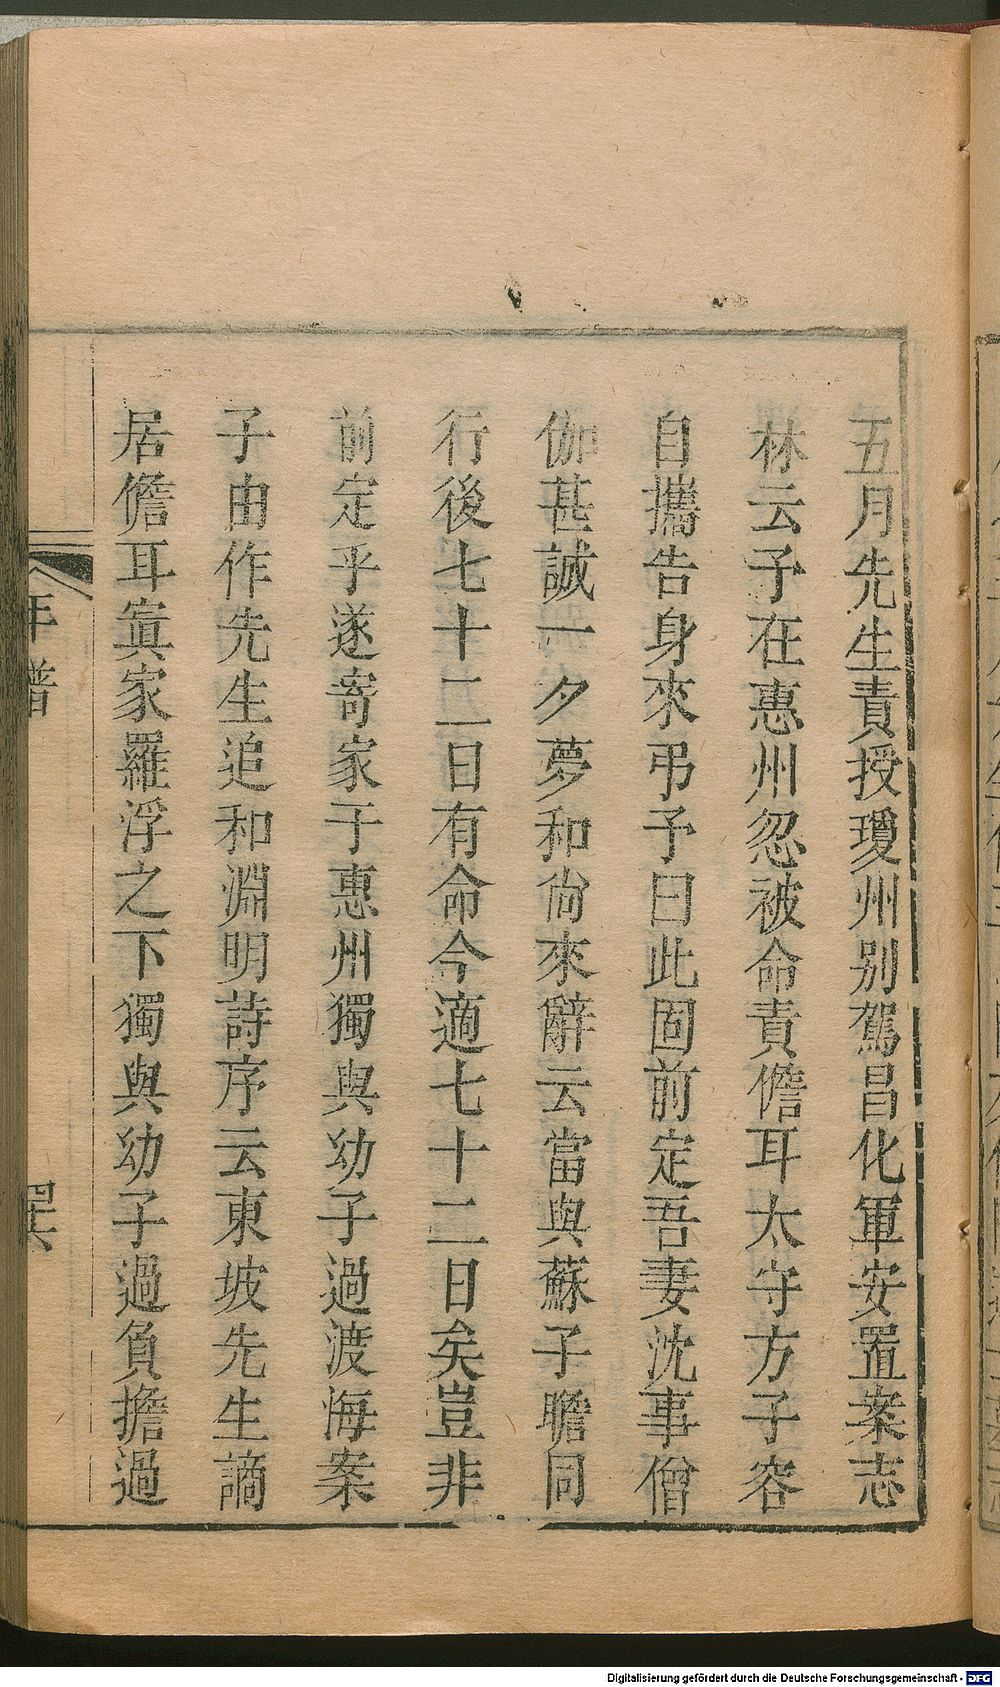 五月先生責授瓊州別駕昌化軍安置案志
林云予在惠州忽被命責儋耳太守方子容
自攜告身來弔予曰此固前定吾妻沈事僧
伽甚誠一夕夢和尙來辭云當與蘇子瞻同
行後七十二日有命今適七十二日矣豈非
前定乎遂寄家于惠州獨與幼子過渡海案
子由作先生追和淵明詩序云東坡先生謫
居儋耳寘家羅浮之下獨與幼子過負擔過
年譜
Digitalisierung gefördert durch die Deutsche Forschungsgemeinschaft - DFG